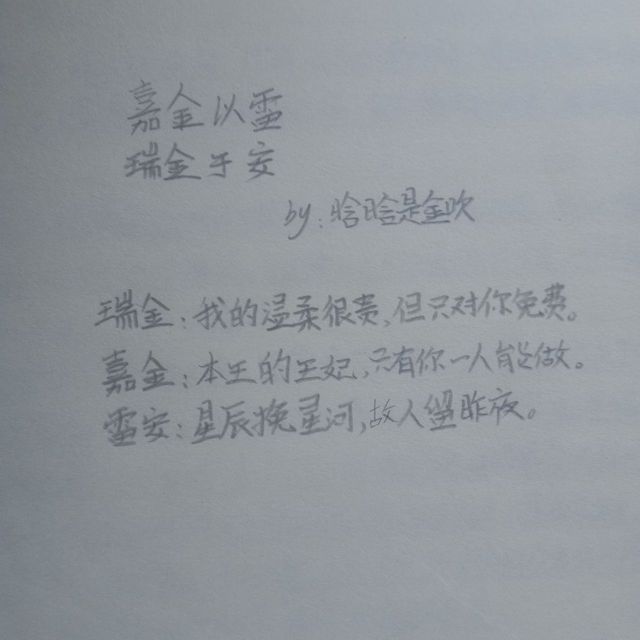 嘉金以雷
瑞金于安
by:晗晗是金吹
瑞金:我的温柔很贵,但只对你免费。
嘉金:本王的王妃,只有你一人能做。
雷安:星辰挽星河,故人留昨夜。